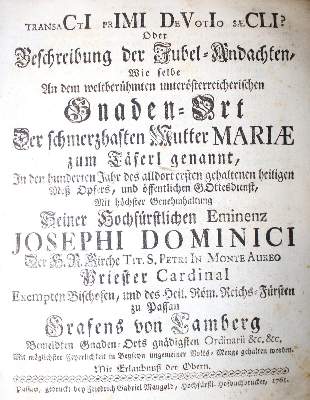 TRANSACTI PRIMI DEVOTIO SÆCLI?
Oder
Beschreibung der Jubel-Andachten,
Wie selbe
An dem weltberühmten unterösterreicherischen
Gnaden-Ort
Der schmerzhaften Mutter MARIÆ
zum Täferl genannt,
In den hunderten Jahr des alldort ersten gehaltenen heiligen
Meß Opfers, und öffentlichen GOttesdienst,
Mit höchster Genehmhaltung
Seiner Hochfürstlichen Eminenz
JOSEPHI DOMINICI
Der H. R. Kirche TIT. S. PETRI IN MONTE AUREO
Priester Cardinal
Exempten Bischofen, und des Heil. Röm. Reichs-Fürsten
zu Passau
Grafens von Lamberg
Gnaden-Orts gnädigsten Ordinarii &c. &c.
Mit möglichster Feyerlichkeit in Beyseyn ungemeiner Volks-Menge gehalten worden.
Mit Erlaubnuß der Obern.
Passau, gedruckt bey Friedrich Gabriel Mangold, Hochfürstl. Hofbuchdrucker, 1761.